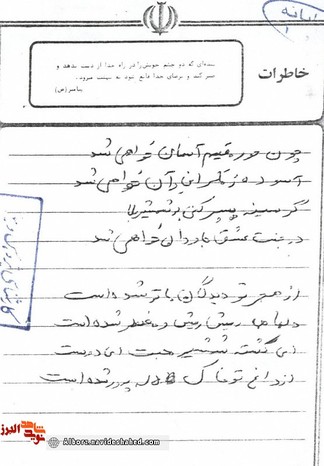 خاطرات
بنده‌ای که دو چشم خویش را در راه خدا از دست بدهد و
صبر کند و برضای خدا قانع شود به بهشت میرود.
پیامبر (ص)
چون مقیم آسمان خواهی شد
آسوده ز این و آن خواهی شد
گر سینه سپر کنی به شمشیر بلا
در جنت عشق جاودان خواهی شد
از هجر تو دیدگان ما تر شده است
دلها ریش ریش و شده است
ای کشته شمشیر محبت ای دوست
از داغ تو خاک لاله پرور شده است
شاهد
نوید
البرز
Alborz.navideshahed.com